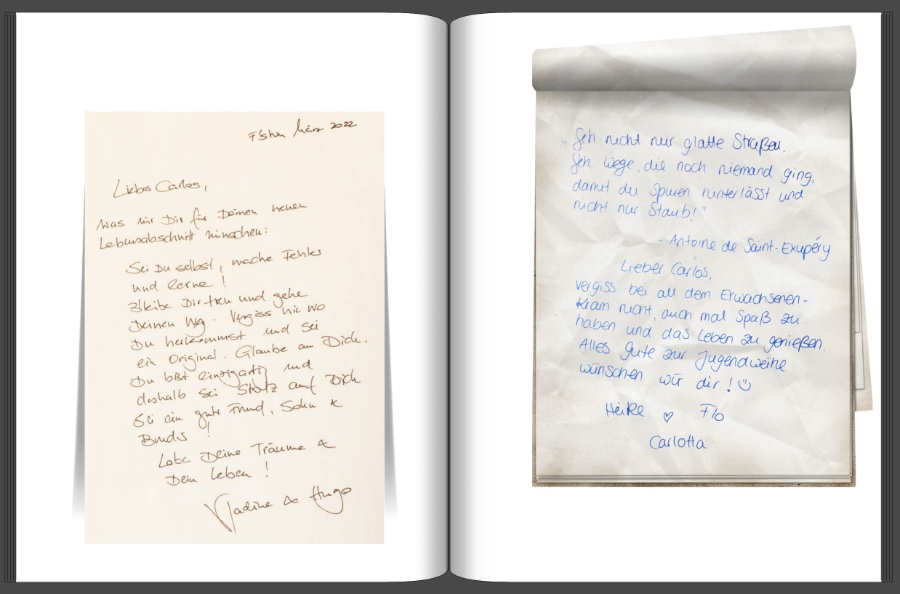 März 2022
Lieber Carlos,
was wir Dir für Deinen neuen
Lebensabschnitt wünschen:
Sei Du selbst, mache Fehler
und lerne!
Bleibe Dir treu und gehe
Deinen Weg. Vergiss nie wo
Du herkommst und sei
ein Original. Glaube an Dich.
Du bist einzigartig und
deshalb sei Stolz auf Dich
Sei ein guter Freund, Sohn &
Bruder!
Lebe Deine Träume &
Dein Leben!
Nadine & Hugo
„Geh nicht nur glatte Straßen.
Geh Wege, die noch niemand ging,
damit du Spuren hinterlässt und
nicht nur Staub!"
- Antoine de Saint-Exupéry
Lieber Carlos,
vergiss bei all dem Erwachsenen-
kram nicht, auch mal Spaß zu
haben und das Leben zu genießen.
Alles Gute zur Jugendweihe
wünschen wir dir! ☺
Heike ♡ Flo
Carlotta